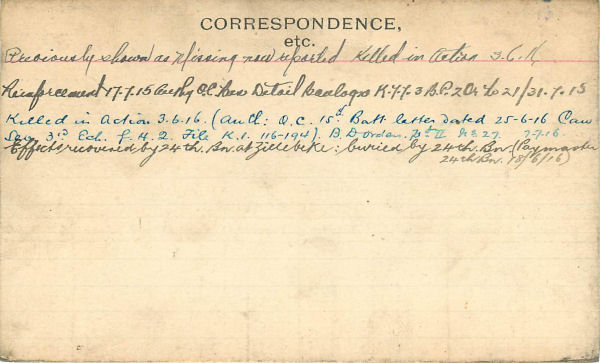 CORRESPONDENCE,
etc.
Previously shown as Missing now reported Killed in Action 3.6.16
Reinforcement 17.7.15 Detail B.P. 20. to 21/31.7.15
Killed in Action 3.6.16. (Auth: O.C. 15th Batt letter dated 25-6-16 Can
Sec. 3rd Ech. G.H.Q. File K.1. 116-194). B.D. Orders. Pt II No 27. 7-7-16.
Effects recovered by 24th. Bn. at Zillebeke: buried by 24th. Bn. (Paymaster
24th Bn. 18/6/16)